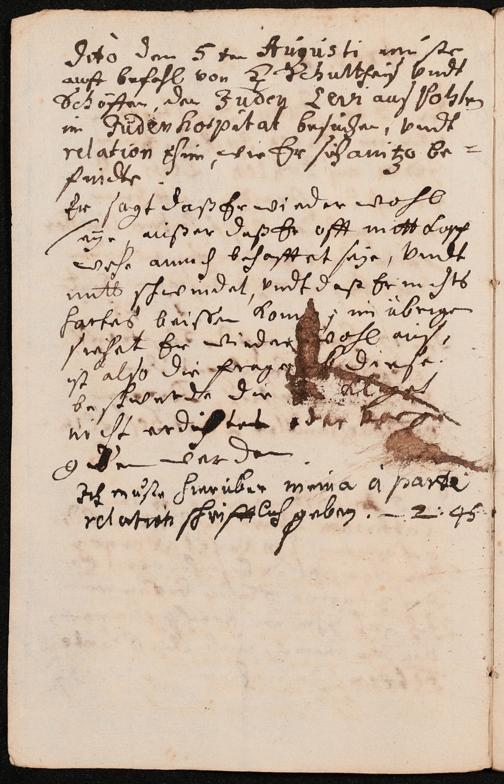 dito den 5 ten Augusti muste
auff befehl von H Schultheiß undt
Schöffen, den Juden Levi aus Pohlen
im Juden hospital besuchen, undt
relation thun, wie Er sich anitzo be=
finde.
Er sagt daß Er wieder wohl
seye, außer daß Er offt mitt kopf
wehe annoch behafftet seye, undt
schwindel, undt daß Er nichts
hartes beissen könne; im übrigen
siehet Er wieder wohl aus,
ist also die frage ob diese
beschwerde die
nicht erdichtet oder
werden
Ich muste hierüber meine à parte
relation schrifftlich geben. — 2: 45